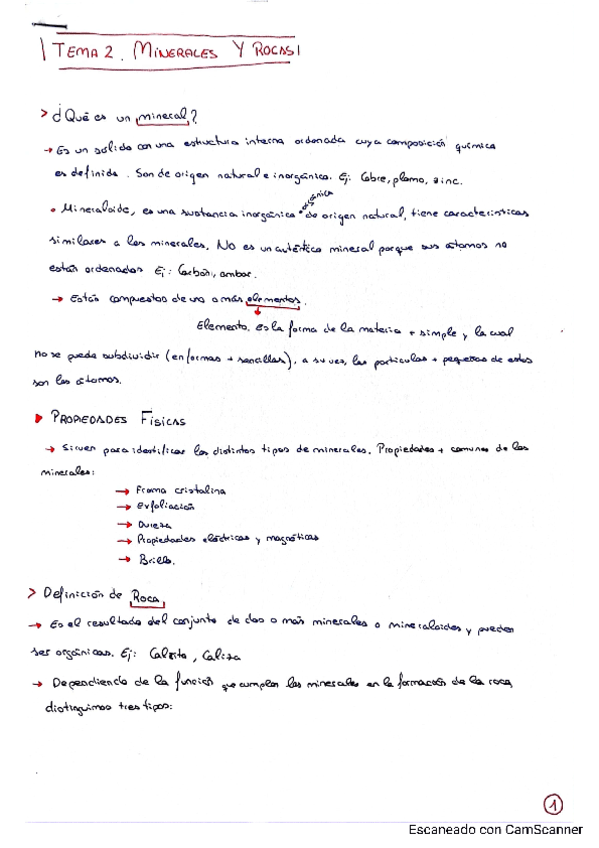 TEMA 2. MINERALES Y ROCAS
> ¿Qué es un mineral?
→ Es un sólido con una estructura interna ordenada cuya composición química
es definida. Son de origen natural e inorgánica. Ej: Cobre, plomo, zinc.
orgánica
• Mineraloide, es una sustancia inorgánica • de origen natural, tiene características
similares a los minerales. No es un auténtico mineral porque sus átomos no
están ordenados Ej: Carbón, ambar.
→ Están compuestos de uno o más elementos.
Elemento. es la forma de la materia + simple y la cual
no se puede subdividir (en formas + sencillas), a su vez, las partículas + pequeñas de estos
son los átomos.
PROPIEDADES FÍSICAS
→ Sirven para identificar los distintos tipos de minerales. Propiedades + comunes de los
minerales:
→ Froma cristalina
→ exfoliación
→ Dureza
→ Propiedades eléctricas y magnéticas
→ Brillo.
> Definición de Roca
→ Es el resultado del conjunto de dos o más minerales o mineraloides y pueden
ser orgánicas. Ej: Calcita, Caliza
→ Dependiendo de la función que cumplan los minerales en la formación de la roca,
distinguimos tres tipos:
1
Escaneado con CamScanner